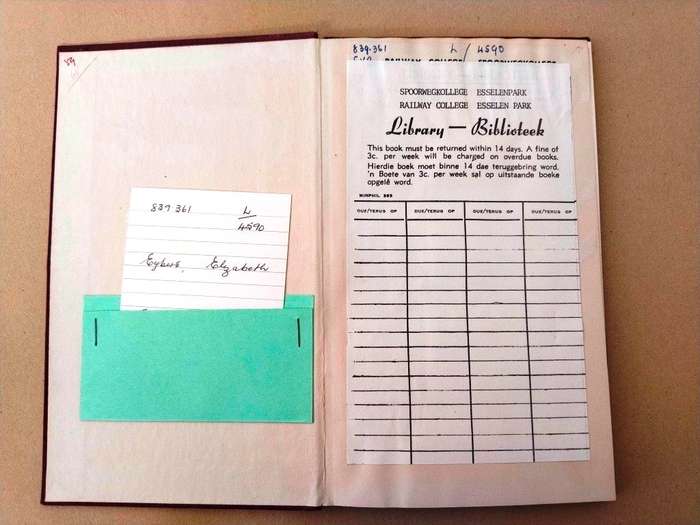 89
839.361 L/4590
RAILWAY COLLEGE SPOORWEGKOLLEGE
SPOORWEGKOLLEGE ESSELENPARK
RAILWAY COLLEGE ESSELEN PARK
Library — Biblioteek
This book must be returned within 14 days. A fine of
3c. per week will be charged on overdue books.
Hierdie boek moet binne 14 dae teruggebring word.
'n Boete van 3c. per week sal op uitstaande boeke
opgelê word.
DUE/TERUG OP DUE/TERUG OP DUE/TERUG OP DUE/TERUG OP
839.361 L
4590
Eybers, Elizabeth